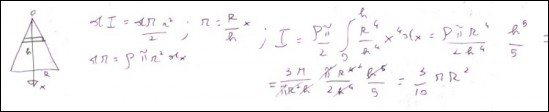 O
h
R
x
dI = dm r² / 2 ; r = R/h x ; I = ρπ/2 ∫₀ʰ R⁴/h⁴ x⁴ dx = ρπR⁴/2h⁴ h⁵/5 =
dm = ρ π r² dx
= 3m/πR²h πR⁴/2h⁴ h⁵/5 = 3/10 m R²